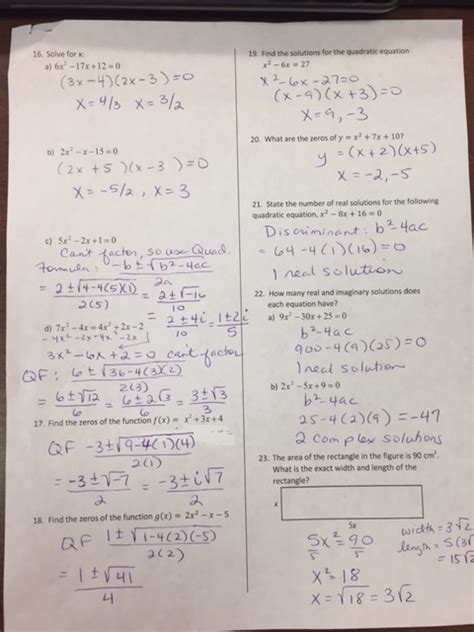 16. Solve for x:
a) 6x² −17x+12=0
(3x−4)(2x−3)=0
x=4/3 x=3/2
b) 2x² −x−15=0
(2x+5)(x−3)=0
x=−5/2, x=3
c) 5x² −2x+1=0
Can't factor, so use Quad.
Formula: −b±√b²−4ac
2a
= 2±√4−4(5)(1)
2(5)
= 2±√−16
10
= 2±4i
10
= 1±2i
5
d) 7x² −4x=4x² +2x−2
−4x² −2x −4x² −2x
3x²−6x+2=0 can't factor
QF: 6±√36−4(3)(2)
2(3)
= 6±√12
6
= 6±2√3
6
= 3±√3
3
17. Find the zeros of the function f(x) = x² +3x+4
QF −3±√9−4(1)(4)
2(1)
= −3±√−7
2
= −3±i√7
2
18. Find the zeros of the function g(x) = 2x² −x−5
QF 1±√1−4(2)(−5)
2(2)
= 1±√41
4
19. Find the solutions for the quadratic equation
x² −6x = 27
x²−6x−27=0
(x−9)(x+3)=0
x=9,−3
20. What are the zeros of y = x² + 7x + 10?
y=(x+2)(x+5)
x=−2,−5
21. State the number of real solutions for the following
quadratic equation, x² − 8x + 16 = 0
Discriminant: b²−4ac
=64−4(1)(16)=0
1 real solution
22. How many real and imaginary solutions does
each equation have?
a) 9x² −30x+25 = 0
b²−4ac
900−4(9)(25)=0
1 real solution
b) 2x² −5x+9 = 0
b²−4ac
25−4(2)(9)=−47
2 complex solutions
23. The area of the rectangle in the figure is 90 cm².
What is the exact width and length of the
rectangle?
x
5x
5x²=90
5 5
x²=18
x=√18=3√2
width=3√2
length=5(3√
=15√2